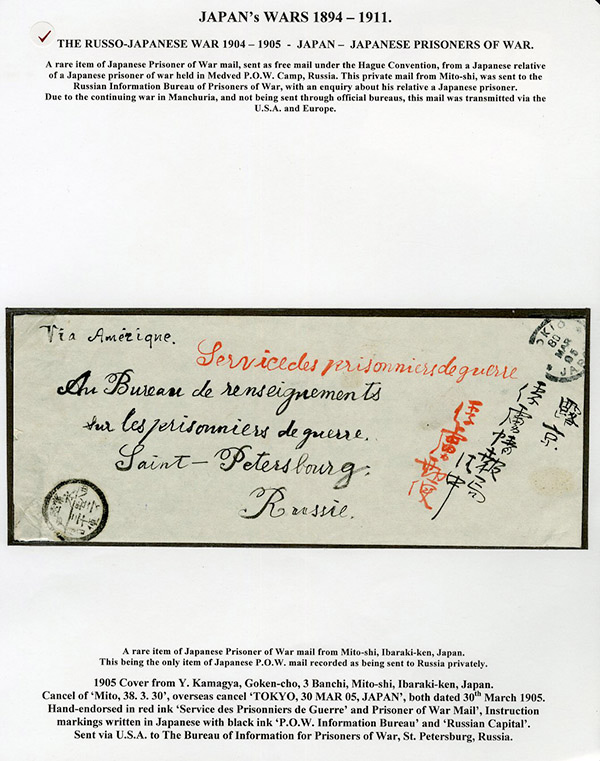 JAPAN's WARS 1894 – 1911.
THE RUSSO-JAPANESE WAR 1904 – 1905 - JAPAN – JAPANESE PRISONERS OF WAR.
A rare item of Japanese Prisoner of War mail, sent as free mail under the Hague Convention, from a Japanese relative
of a Japanese prisoner of war held in Medved P.O.W. Camp, Russia. This private mail from Mito-shi, was sent to the
Russian Information Bureau of Prisoners of War, with an enquiry about his relative a Japanese prisoner.
Due to the continuing war in Manchuria, and not being sent through official bureaus, this mail was transmitted via the
U.S.A. and Europe.
Via Amérique.
Service des prisonniers de guerre
Au Bureau de renseignements
sur les prisonniers de guerre.
Saint-Petersbourg.
Russie.
MAR
05
露京
俘虜情報局
御中
俘虜郵便
A rare item of Japanese Prisoner of War mail from Mito-shi, Ibaraki-ken, Japan.
This being the only item of Japanese P.O.W. mail recorded as being sent to Russia privately.
1905 Cover from Y. Kamagya, Goken-cho, 3 Banchi, Mito-shi, Ibaraki-ken, Japan.
Cancel of ‘Mito, 38. 3. 30’, overseas cancel ‘TOKYO, 30 MAR 05, JAPAN’, both dated 30th March 1905.
Hand-endorsed in red ink ‘Service des Prisonniers de Guerre’ and Prisoner of War Mail’, Instruction
markings written in Japanese with black ink ‘P.O.W. Information Bureau’ and ‘Russian Capital’.
Sent via U.S.A. to The Bureau of Information for Prisoners of War, St. Petersburg, Russia.